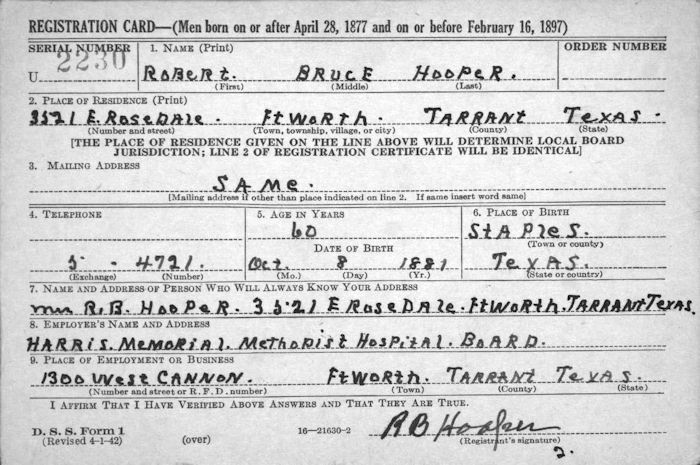 REGISTRATION CARD—(Men born on or after April 28, 1877 and on or before February 16, 1897)
SERIAL NUMBER 1. NAME (Print) ORDER NUMBER
U 2230 ROBERT. BRUCE HOOPER.
(First) (Middle) (Last)
2. PLACE OF RESIDENCE (Print)
3521 E. ROSEDALE. FT WORTH. TARRANT TEXAS.
(Number and street) (Town, township, village, or city) (County) (State)
[THE PLACE OF RESIDENCE GIVEN ON THE LINE ABOVE WILL DETERMINE LOCAL BOARD
JURISDICTION; LINE 2 OF REGISTRATION CERTIFICATE WILL BE IDENTICAL]
3. MAILING ADDRESS
SAME.
[Mailing address if other than place indicated on line 2. If same insert word same]
4. TELEPHONE 5. AGE IN YEARS 6. PLACE OF BIRTH
60 STAPLES.
DATE OF BIRTH (Town or county)
5 - 4721. Oct. 8 1881 TEXAS.
(Exchange) (Number) (Mo.) (Day) (Yr.) (State or country)
7. NAME AND ADDRESS OF PERSON WHO WILL ALWAYS KNOW YOUR ADDRESS
mrs R.B. HOOPER. 3521 E ROSEDALE. FT WORTH. TARRANT TEXAS.
8. EMPLOYER'S NAME AND ADDRESS
HARRIS. MEMORIAL. METHODIST HOSPITAL. BOARD.
9. PLACE OF EMPLOYMENT OR BUSINESS
1300 WEST CANNON. FT WORTH. TARRANT TEXAS.
(Number and street or R. F. D. number) (Town) (County) (State)
I AFFIRM THAT I HAVE VERIFIED ABOVE ANSWERS AND THAT THEY ARE TRUE.
D. S. S. Form 1
(Revised 4-1-42) (over) 16—21630-2 RB Hooper
(Registrant's signature)
2.